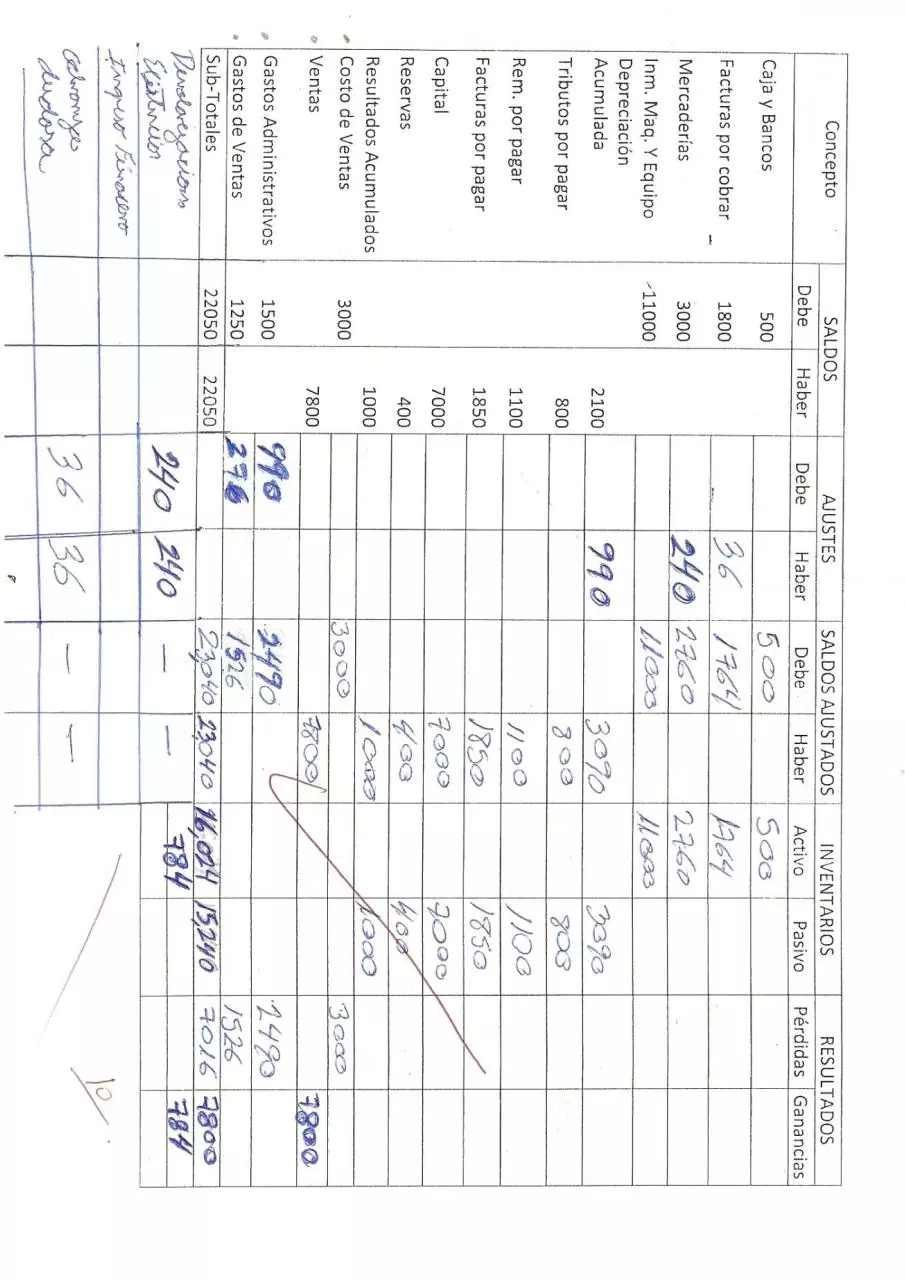 Concepto SALDOS AJUSTES SALDOS AJUSTADOS INVENTARIOS RESULTADOS
Debe Haber Debe Haber Debe Haber Activo Pasivo Pérdidas Ganancias
Caja y Bancos 500 500 500
Facturas por cobrar 1800 36 1764 1764
Mercaderías 3000 240 2760 2760
Inm. Maq. Y Equipo 11000 11000 11000
Depreciación
Acumulada 2100 990 3090 3090
Tributos por pagar 800 800 800
Rem. por pagar 1100 1100 1100
Facturas por pagar 1850 1850 1850
Capital 7000 7000 7000
Reservas 400 400 400
Resultados Acumulados 1000 1000 1000
Costo de Ventas 3000 3000 3000
Ventas 7800 7800 7800
Gastos Administrativos 1500 990 2490 2490
Gastos de Ventas 1250 276 1526 1526
Sub-Totales 22050 22050 23,040 23,040 16,024 15,240 7016 7800
240 240 — — 784 784
cobranza
dudosa 36 36 — —
10